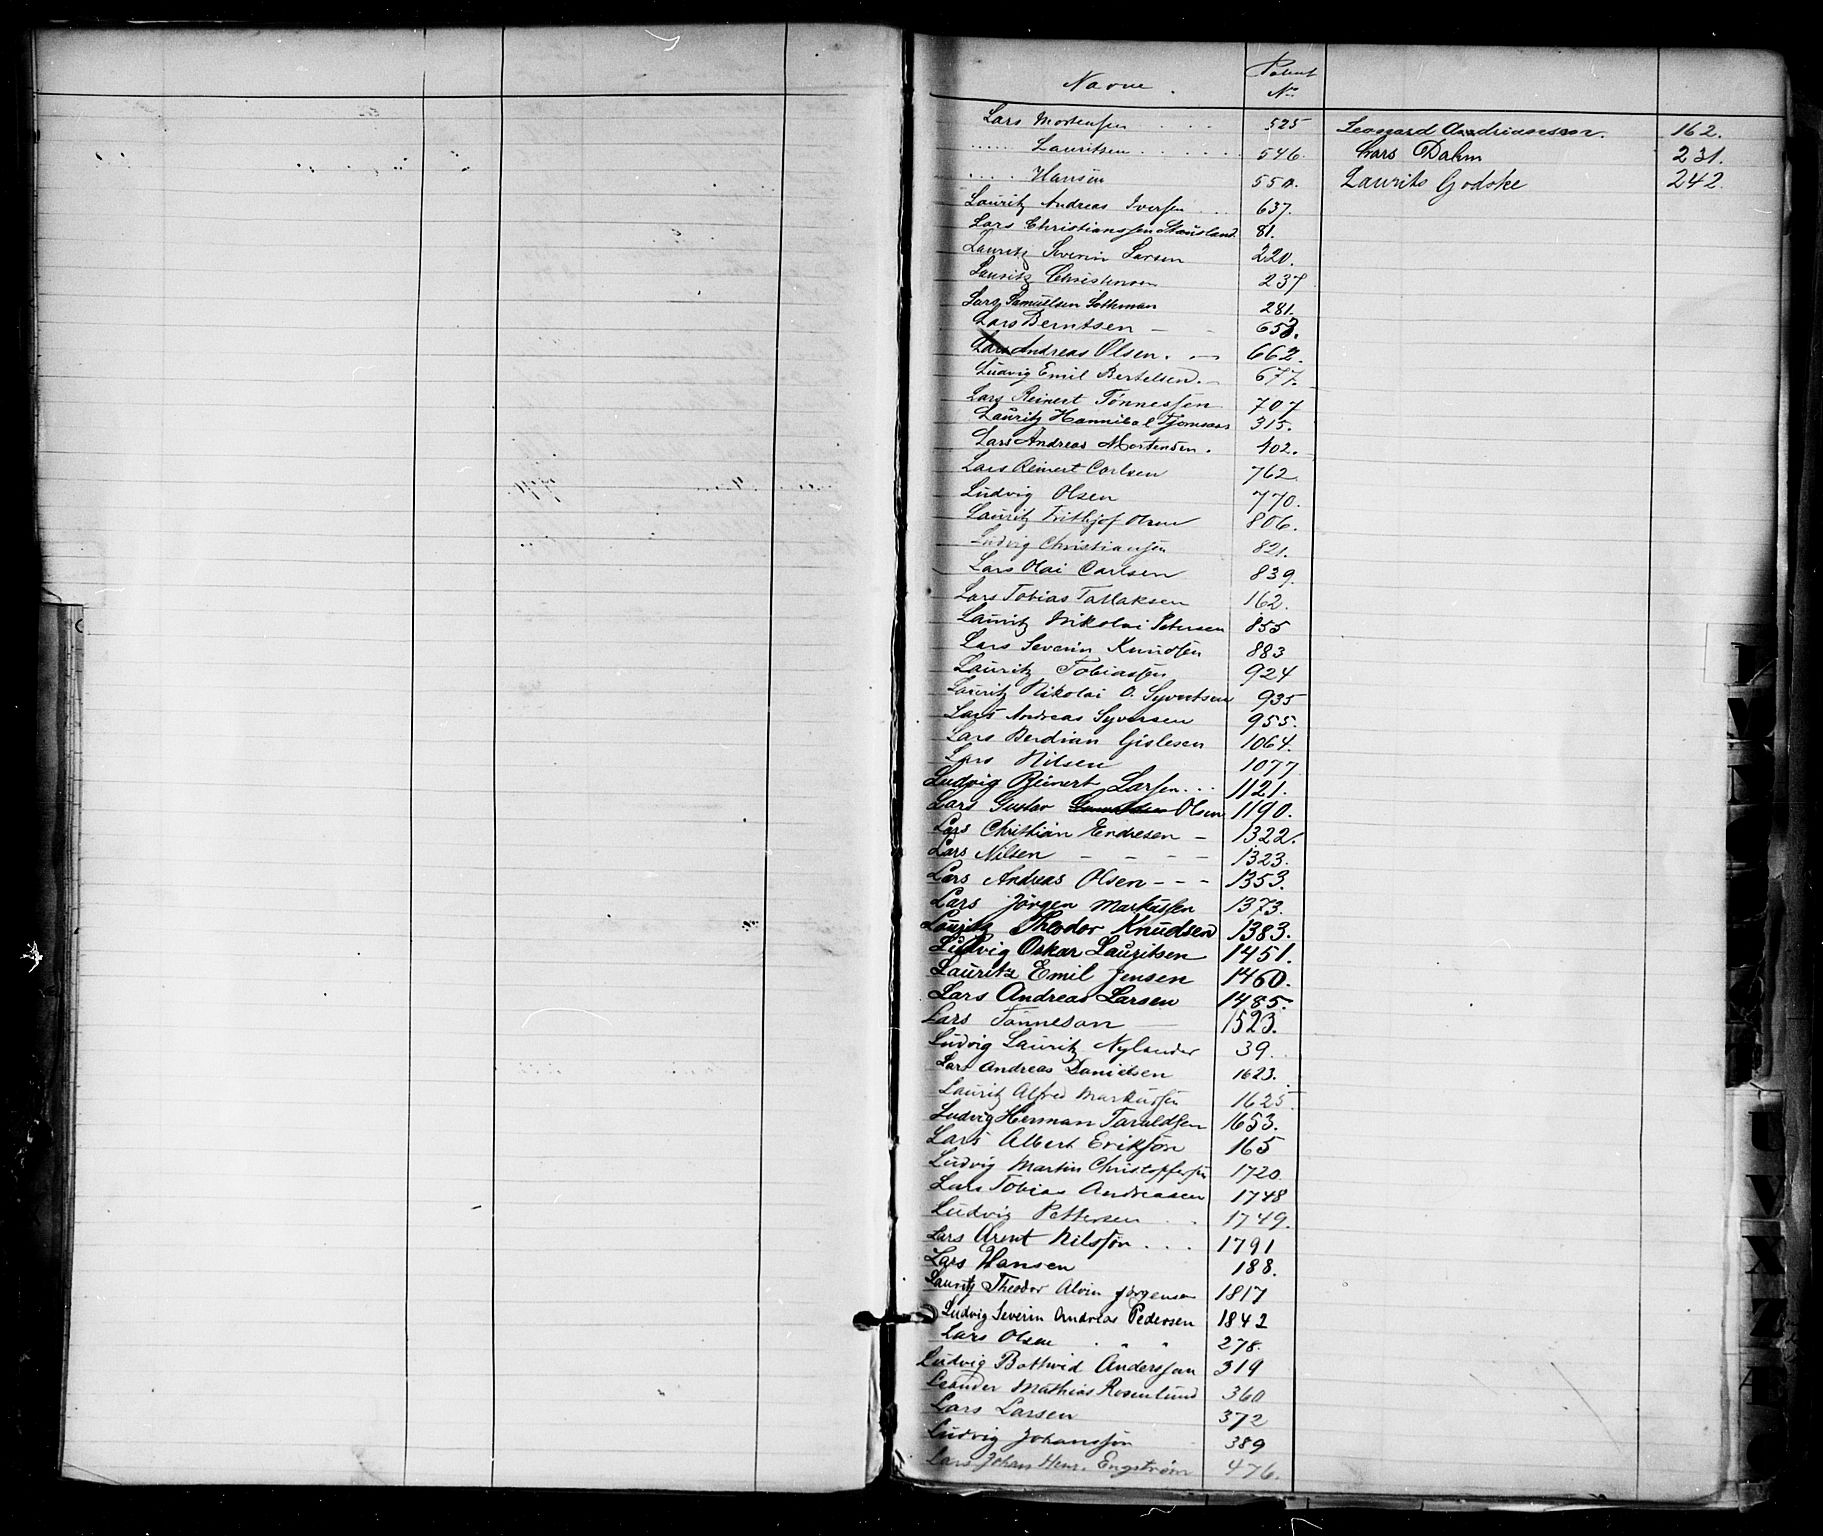 Navne. Patent No
Lars Mortensen . . . . 525
" Lauritsen . . . . . . 546.
" Hansen 550.
Lauritz Andreas Iversen . . . 637.
Lars Christianssen Stausland 81.
Lauritz Severin Larsen 220.
Lauritz Christensen 237
Lars Samuelsen Sothman 281.
Lars Berntsen — - 653.
Lars Andreas Olsen. — 662.
Ludvig Emil Bertelsen. — 677.
Lars Reinert Tønnessen 707
Lauritz Hannibal Tjomsaas 315.
Lars Andreas Mortensen. 402.
Lars Reinert Carlsen 762
Ludvig Olsen 770.
Lauritz Frithjof Olsen 806.
Ludvig Christiansen 821.
Lars Olai Carlsen 839.
Lars Tobias Tallaksen 162.
Lauritz Nikolai Petersen 855
Lars Severin Knudsen 883
Lauritz Tobiassen 924
Lauritz Nikolai O. Syvertsen 935
Lars Andreas Syversen 955.
Lars Berdian Gislesen 1064.
Lars Nilsen 1077
Ludvig Reinert Larsen . . . 1121.
Lars Gustav Olsen 1190.
Lars Christian Endresen — 1322.
Lars Nilsen - - - - 1323.
Lars Andreas Olsen - - - 1353.
Lars Jørgen Markussen 1373.
Lauritz Theodor Knudsen 1383.
Ludvig Oskar Lauritsen 1451.
Lauritz Emil Jensen 1460.
Lars Andreas Larsen 1485.
Lars Tønneson — 1523.
Ludvig Lauritz Nylander 39.
Lars Andreas Danielsen 1623.
Lauritz Alfred Markussen 1625.
Ludvig Herman Taraldsen 1653.
Lars Albert Eriksøn 165
Ludvig Martin Christoffersen 1720.
Lars Tobias Andreasen 1748
Ludvig Pettersen . . 1749.
Lars Arent Nilssøn . . . 1791
Lars Hansen 188.
Lauritz Theodor Alvin Jørgensen 1817
Ludvig Severin Andreas Pedersen 1842
Lars Olsen . " " 278.
Ludvig Bothvid Anderssøn 319
Leander Mathias Rosenlund 360
Lars Larsen 372
Ludvig Johanssøn 389
Lars Johan Henr. Engstrøm 476.
Leonard Andrianesson. 162.
Lars Dahm 231.
Laurits Godske 242.
U
V
X
Z
Æ